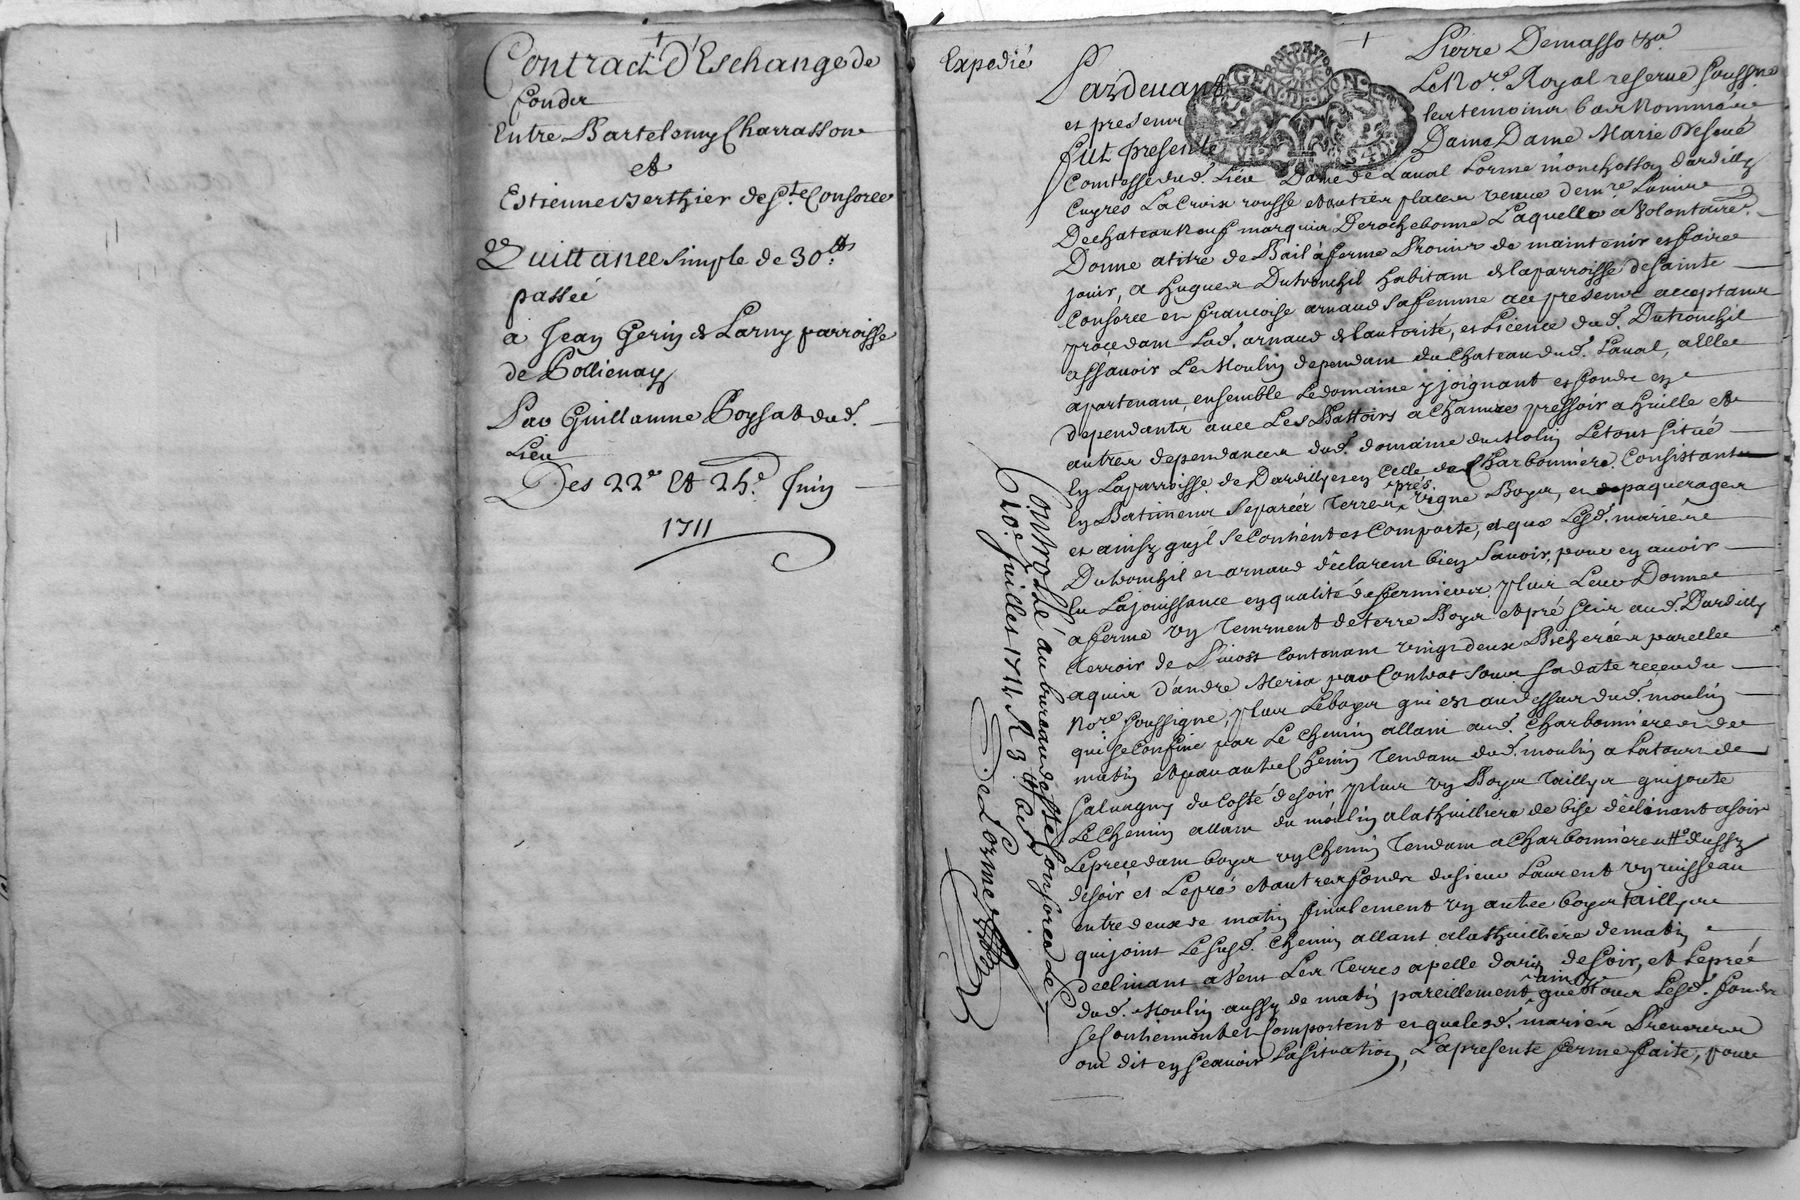 Contract d'Eschange de
fonds
Entre Bartelemy Charrasson
et
Estienne Berthier de Ste Consorce
Quittance simple de 30 lt
passée
a Jean Gerin de Larny parroisse
de Pollienay
Par Guillaume Poysat dud.
Lieu
Des 22e et 25e Juin
1711
Expedié
Pierre Demasso
Pardevant Le Nore Royal reservé soussigné
et presents les temoins bas Nommés
fut presente Dame Dame Marie
Comtesse dud. Lieu Dame de Laval Lorme monchosson dardilly
Cuyres La Croix rousse et autres places veuve de mre
De chateauneuf marquis De rochebonne Laquelle a Volontairet.
Donne a titre de Bail a ferme Promis de maintenir et faire
jouir, a Hugues Dutronchil habitant de la parroisse de Sainte
Consorce et francoise arnaud sa femme acc presents acceptants
procedant Lad. arnaud de l'autorité, et Licence dud. Dutronchil
assavoir Le Moulin dependant du Chateau dud. Laval, a Elle
apartenant, ensemble Le domaine y joignant et fonds en
dependants avec Les Battoirs a Chanvre pressoir a huille et
autres dependances dud. domaine du Molin Le tout situé
En La parroisse de Dardilly et en Celle de Charbonniere Consistants
En Batiments Separées Terres prés vigne Boys, et paquerages
et ainsy qu'il se Contient et Comporte, et que Lesd. mariés
Dutronchil et arnaud déclarent bien Savoir, pour en avoir
Eu La jouissance en qualité de fermiers plus Leur Donne
a ferme un Tenement de terre Boys et pré scis aud. Dardilly
terroir de contenant vingt deux Bicherées parelle
aquis d'andre Meria par Contrat sous sa date reçeu du
Nore soussigne, plus Le boys qui est au dessus dud. moulin
qui se confine par Le Chemin allant aud. Charbonniere de
matin et par autre Chemin Tendant dud. moulin a La tour de
Salvagny du Costé de soir plus un Boys Taillys qui joute
Le Chemin allant du moulin a la thuilliere de bise déclinant a soir
Le precedant boys un Chemin Tendant a Charbonniere aussy
de soir, et Le pré et autres fonds du sieur Laurent un ruisseau
entre deux de matin finalement un autre boys taillys
qui joint Le susd. Chemin allant a la thuilliere de matin
declinant a Vent Les Terres apellé de soir, et Le pré
dud. Moulin aussy de matin pareillement ainsy que tous Lesd. fonds
se Contiennent et Comportent et que lesd. mariés Preneurs
ont dit en scavoir La situation, La presente ferme faite, pour
Controllé au bureau de Ste Consorce Le
10e Juillet 1711 R 3 lt
Delorme